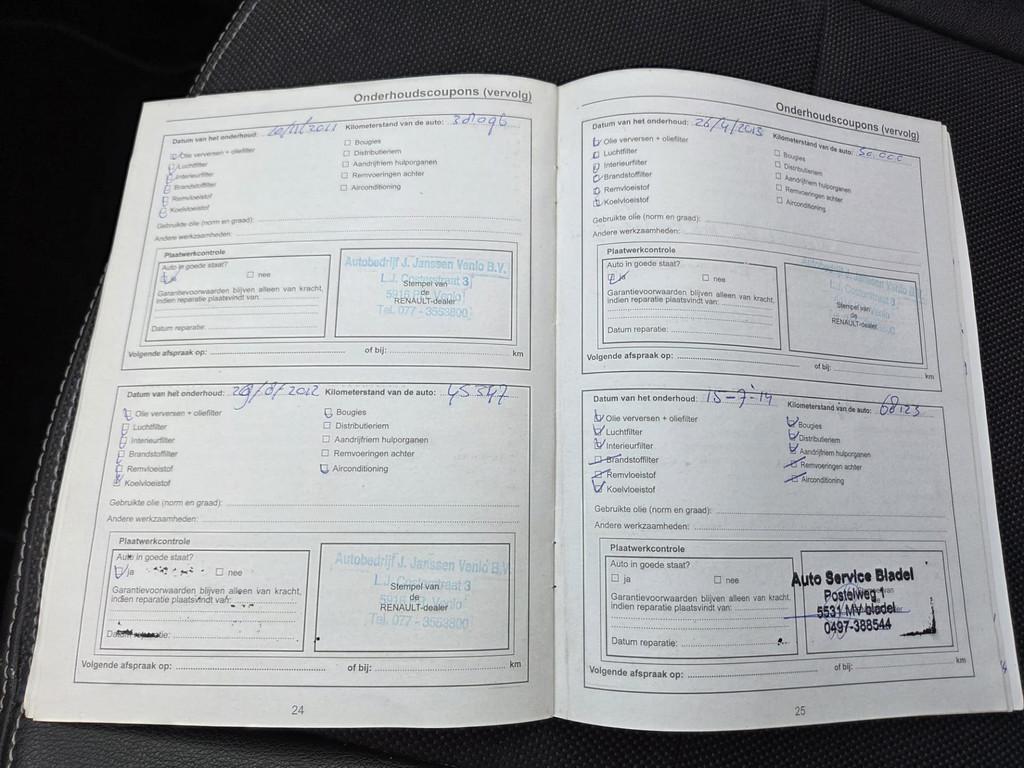 Onderhoudscoupons (vervolg)
Datum van het onderhoud: Kilometerstand van de auto:
Olie verversen + oliefilter
Luchtfilter
Interieurfilter
Brandstoffilter
Remvloeistof
Koelvloeistof
Bougies
Distributieriem
Aandrijfriem hulporganen
Remvoeringen achter
Airconditioning
Gebruikte olie (norm en graad):
Andere werkzaamheden:
Plaatwerkcontrole
Auto in goede staat?
ja nee
Garantievoorwaarden blijven alleen van kracht,
indien reparatie plaatsvindt van:
Datum reparatie:
Autobedrijf J. Janssen Venlo B.V.
L.J. Costerstraat 3
Stempel van
de
RENAULT-dealer
Tel. 077 - 3553800
Volgende afspraak op: of bij: km
Datum van het onderhoud: Kilometerstand van de auto: 45347
Olie verversen + oliefilter
Luchtfilter
Interieurfilter
Brandstoffilter
Remvloeistof
Koelvloeistof
Bougies
Distributieriem
Aandrijfriem hulporganen
Remvoeringen achter
Airconditioning
Gebruikte olie (norm en graad):
Andere werkzaamheden:
Plaatwerkcontrole
Auto in goede staat?
ja nee
Garantievoorwaarden blijven alleen van kracht,
indien reparatie plaatsvindt van:
Datum reparatie:
Autobedrijf J. Janssen Venlo B.V.
L.J. Costerstraat 3
Stempel van
de
RENAULT-dealer
Tel. 077 - 3553800
Volgende afspraak op: of bij: km
24
Onderhoudscoupons (vervolg)
Datum van het onderhoud: 26/4/2013 Kilometerstand van de auto: 50.000
Olie verversen + oliefilter
Luchtfilter
Interieurfilter
Brandstoffilter
Remvloeistof
Koelvloeistof
Bougies
Distributieriem
Aandrijfriem hulporganen
Remvoeringen achter
Airconditioning
Gebruikte olie (norm en graad):
Andere werkzaamheden:
Plaatwerkcontrole
Auto in goede staat?
ja nee
Garantievoorwaarden blijven alleen van kracht,
indien reparatie plaatsvindt van:
Datum reparatie:
Stempel van
de
RENAULT-dealer
Volgende afspraak op: of bij: km
Datum van het onderhoud: 15-7-14 Kilometerstand van de auto: 68123
Olie verversen + oliefilter
Luchtfilter
Interieurfilter
Brandstoffilter
Remvloeistof
Koelvloeistof
Bougies
Distributieriem
Aandrijfriem hulporganen
Remvoeringen achter
Airconditioning
Gebruikte olie (norm en graad):
Andere werkzaamheden:
Plaatwerkcontrole
Auto in goede staat?
ja nee
Garantievoorwaarden blijven alleen van kracht,
indien reparatie plaatsvindt van:
Datum reparatie:
Auto Service Bladel
Postelweg 1
5531 MV bladel
0497-388544
Volgende afspraak op: of bij: km
25